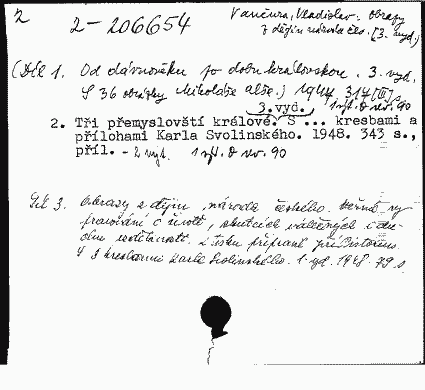 2
2-206654
Vančura, Vladislav: Obrazy
z dějin národa čes. [3. vyd.]
(Díl 1. Od dávnověku po dobu královskou. 3. vyd.
S 36 obrázky Mikoláše Alše.) 1944. 314, [III] s.
3. vyd. 1 výt. D rev. 90
2. Tři přemyslovští králové. S ... kresbami a
přílohami Karla Svolinského. 1948. 343 s.,
příl. - 2 výt. 1 výt. D rev. 90
Díl 3. Obrazy z dějin národa českého. Věrná vy
pravování o životě, skutcích válečných i du-
chu vzdělanosti. K tisku připravil Jiří
S kresbami Karla Svolinského. 1. vyd. 1948. 79 s.